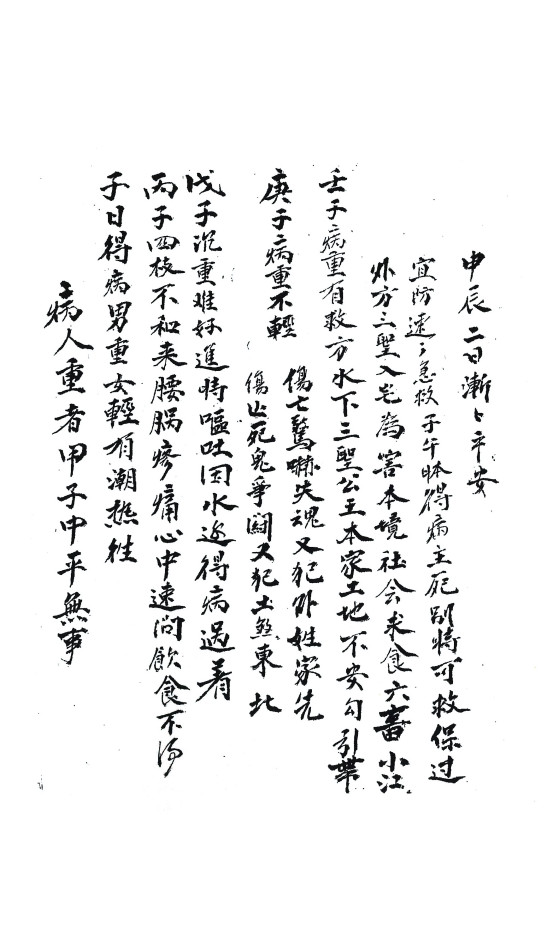 病人重者甲子中平無事
子日得病男重女輕有潮热往
丙子四肢不和来腰腸疼痛心中速悶飲食不湯
戊子沉重难好進時嘔吐因水边得病遇着
傷亡死鬼爭鬪又犯土煞東北
庚子病重不輕 傷亡驚嚇失魂又犯外姓家先
壬子病重有救方水下三聖公王本家土地不安勾引
外方三聖入宅為害本境社会求食六畜小江
宜防速々急救子午時得病主死别時可救保过
申辰二日漸々平安